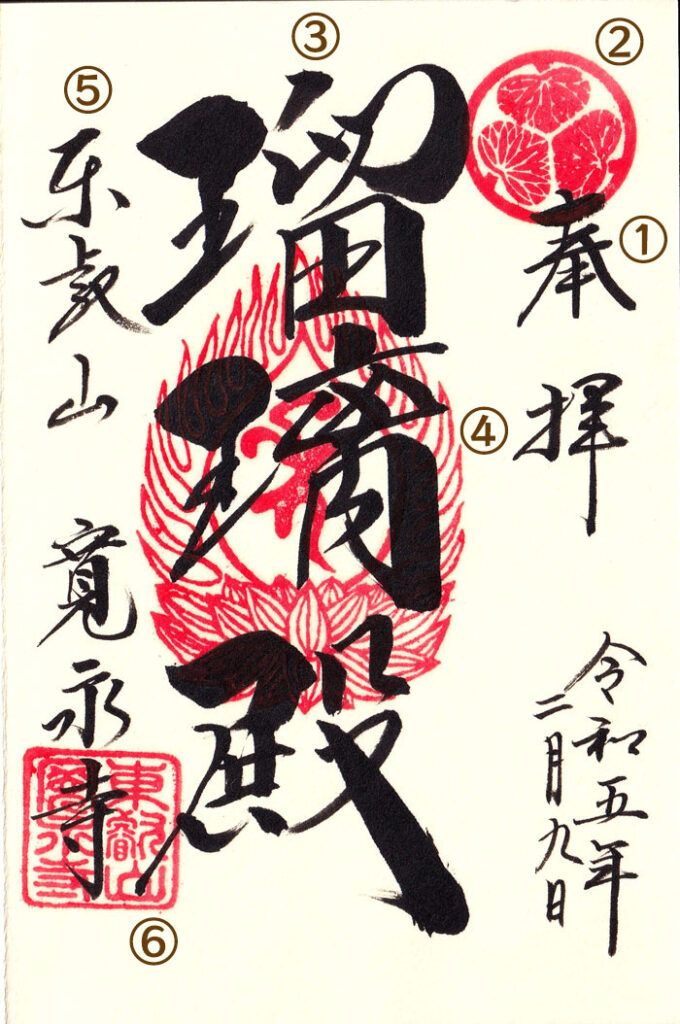 ②
①
奉拝
令和五年
二月九日
③
④
瑠璃殿
⑤
東叡山 寛永寺
東叡山
寛永寺
⑥